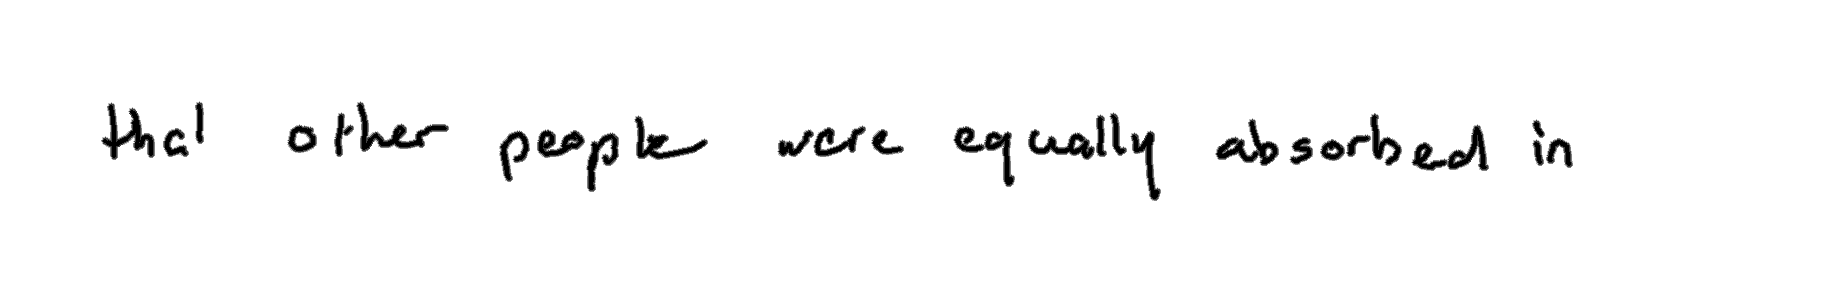 that other people were equally absorbed in